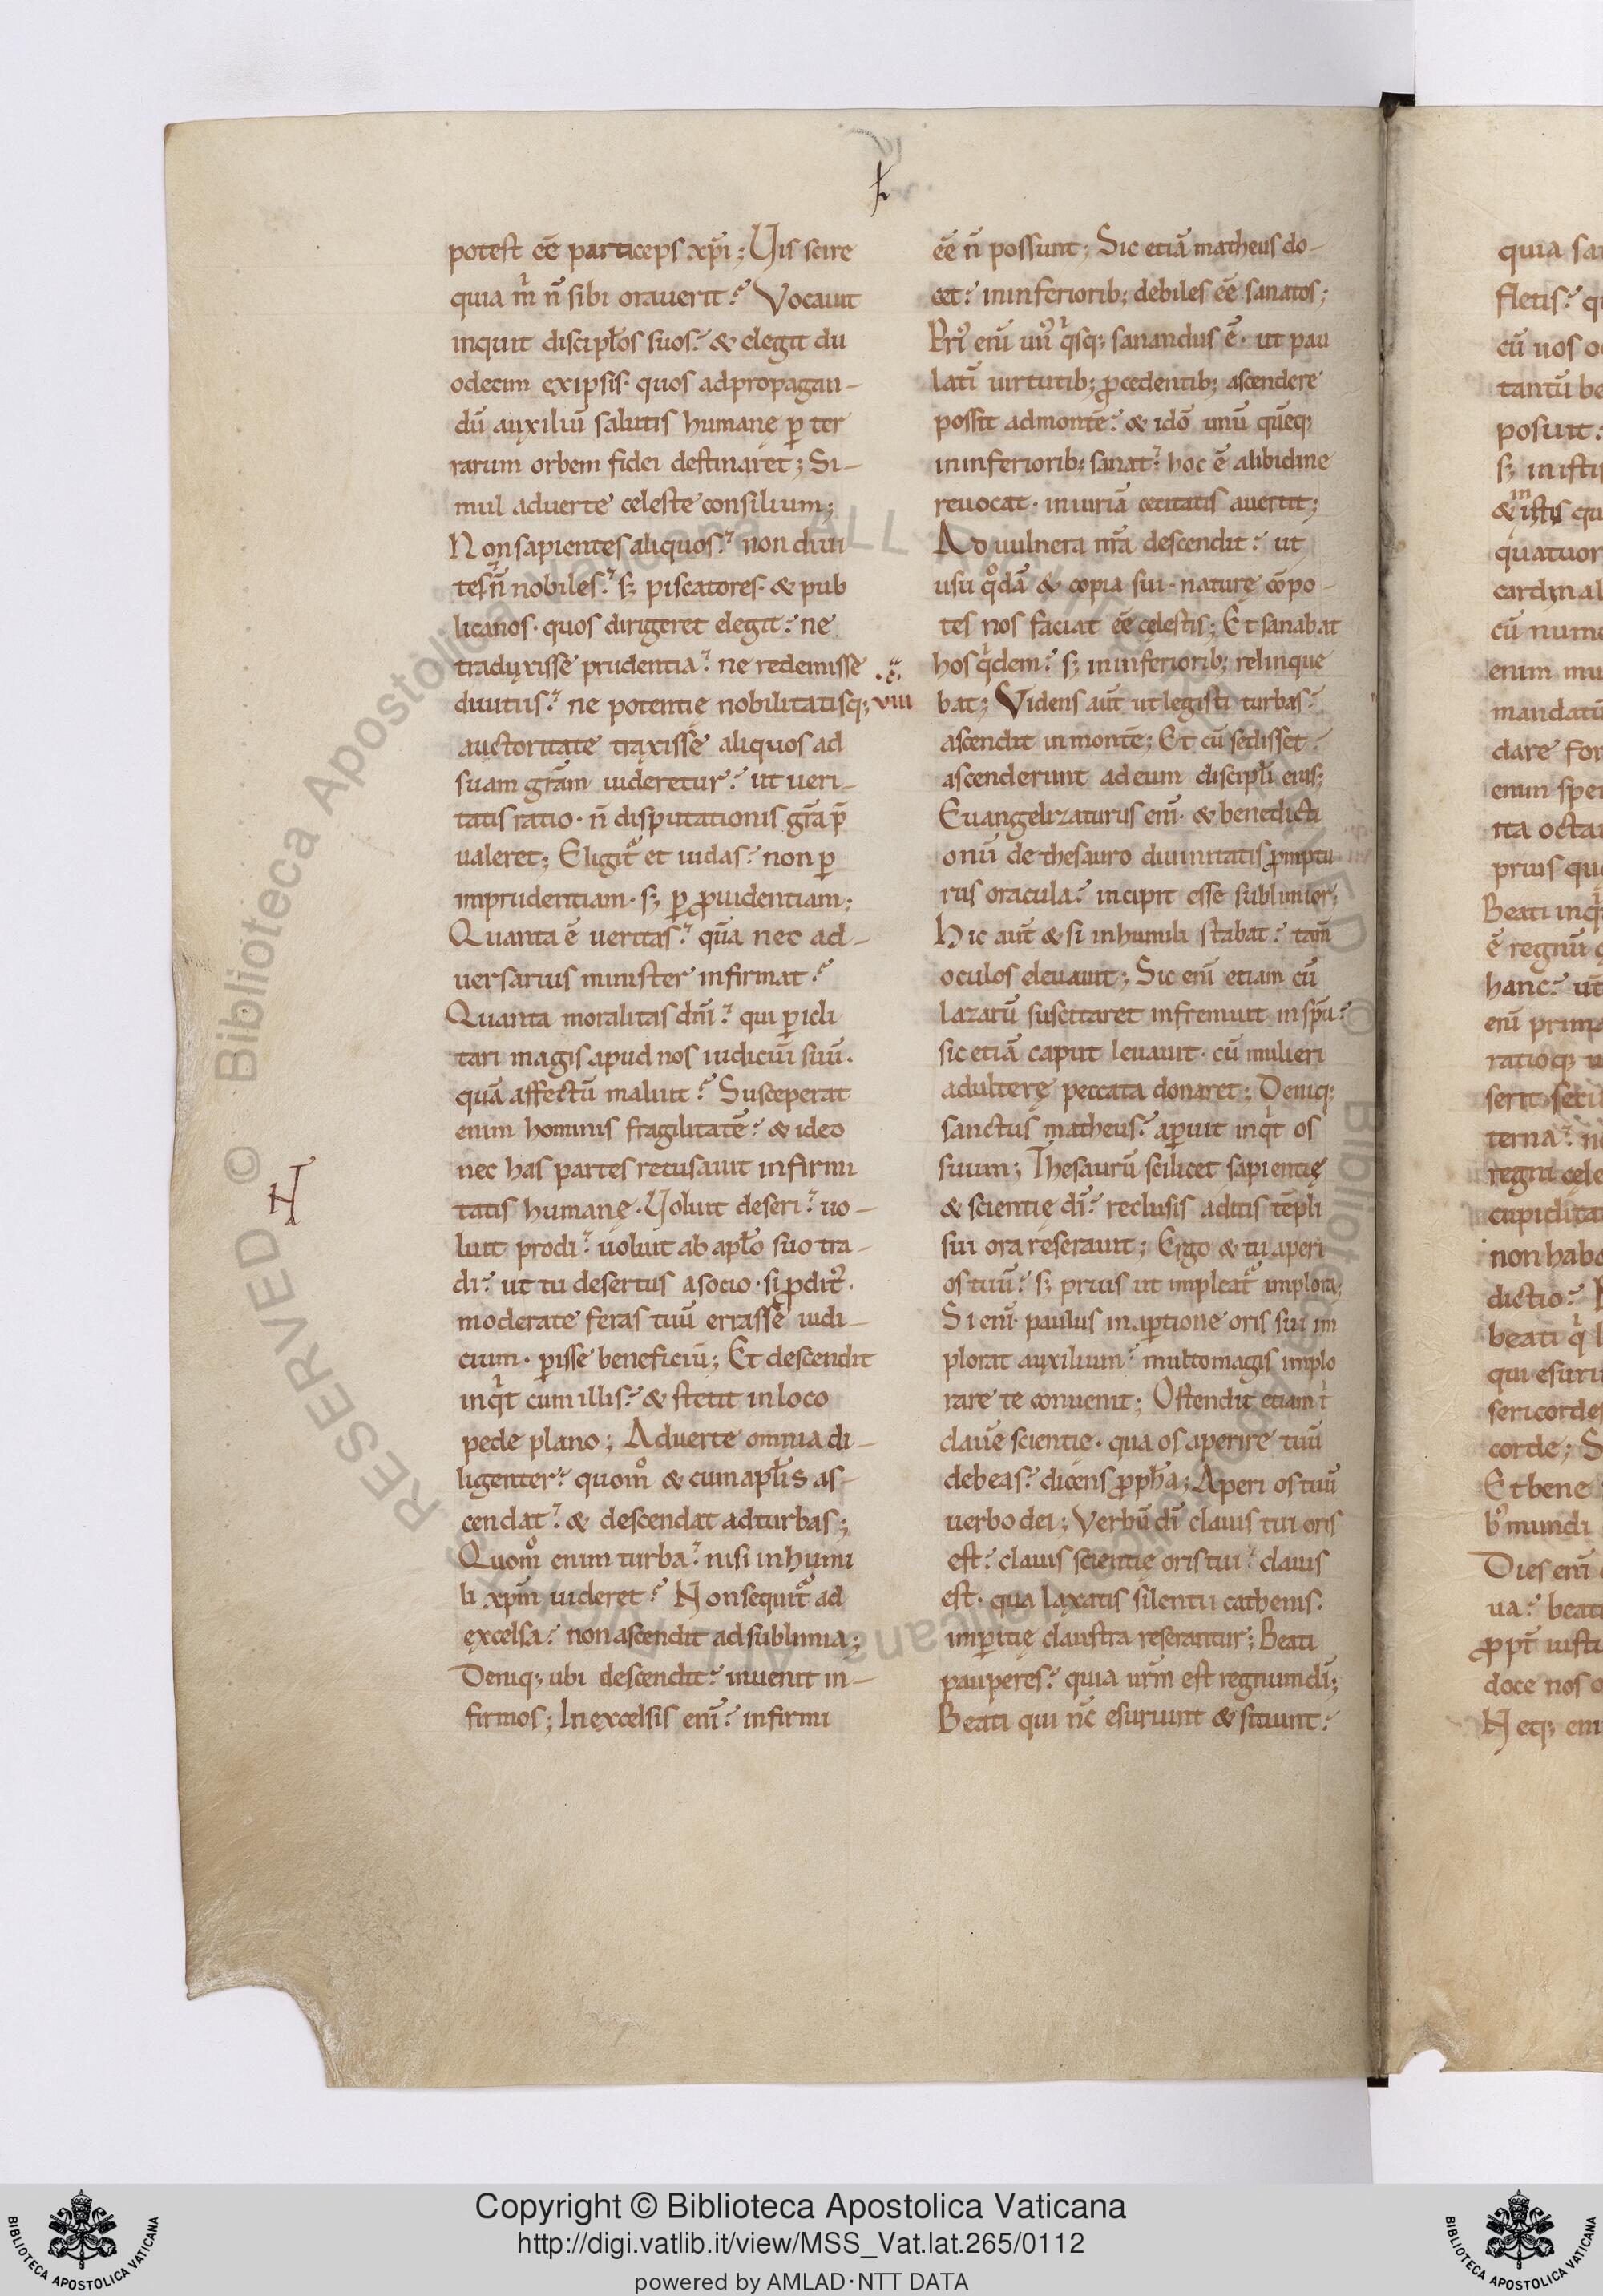 potest eē particeps xp̄i; Vis scire
quia m̄ n̄ sibi orauerit? Vocauit
inquit discipl̄os suos? & elegit du
odecim exipsis· quos adpropagan-
dū auxiliū salutis humanę p̱ ter
rarum orbem fidei destinaret; Si-
mul aduerte celeste consilium;
Non sapientes aliquos? non diui
tes? n̄ nobiles? s; piscatores· & pub
licanos· quos dirigeret elegit? ne
traduxisse prudentia? ne redemisse
diuitiis? ne potentię nobilitatisq;
auctoritate traxisse aliquos ad
suam gr̄am uideretur? ut ueri-
tatis ratio· n̄ disputationis gr̄a p̄
ualeret; Eligit̄ et iudas? non p̱
imprudentiam· s; p̱ ꝓuidentiam;
Quanta ē ueritas? quā nec ad-
uersarius minister infirmat?
Quanta moralitas dn̄i? qui p̱icli
tari magis apud nos iudiciū suū·
quā affectū maluit? Susceperat
enim hominis fragilitatē? & ideo
nec has partes recusauit infirmi
tatis humanę· Voluit deseri? uo-
luit prodi? uoluit ab apl̄o suo tra-
di? ut tu desertus asocio· si ꝓdit᷒·
moderate feras tuū errasse iudi-
cium· p̱isse beneficiū; Et descendit
inqͥt cum illis? & stetit inloco
pede plano; Aduerte omnia di-
ligenter? quomͦ & cumapl̄is as-
cendat? & descendat adturbas;
Quomͦ enim turba? nisi inhumi
li xpm̄ uideret? Non sequit̄ ad
excelsa? non ascendit adsublimia;
Deniq; ubi descendit? inuenit in-
firmos; Inexcelsis enī? infirmi
viii
eē n̄ possunt; Sic etiā matheus do-
cet? ininferiorib; debiles eē sanatos;
Priꝰ enī unꝰ qͥsq; sanandus ē· ut pau
latī uirtutib; ꝓcedentib; ascendere
possit admontē? & idō unū quēq;
ininferiorib; sanat? hoc ē alibidine
reuocat· iniuriā cecitatis auertit;
Ad uulnera nr̄a descendit? ut
usu qͦdā & copia sui· naturę cōpo-
tes nos faciat eē cęlestis; Et sanabat
hos qͥdem? s; ininferiorib; relinque
bat; Videns aūt ut legisti turbas?
ascendit in montē; Et cū sedisset?
ascenderunt ad eum discipl̄i eius;
Euangelizaturus enī· & benedicti
onū de thesauro diuinitatis ꝓmptu
rus oracula? incipit esse sublimior;
Hic aūt & si inhumili stabat? tam̄
oculos eleuauit; Sic enī etiam cū
lazarū suscitaret infremuit in sp̄u?
sic etiā caput leuauit· cū mulieri
adulterę peccata donaret; Deniq;
sanctus matheus? ap̱uit inqͥt os
suum; Thesaurū scilicet sapientię
& scientię dī? reclusis aditis tēpli
sui ora reserauit; Ergo & tu aperi
os tuū? s; prius ut impleat᷒ implora;
Si enī· paulus in ap̱tione oris sui im
plorat auxilium? multomagis implo
rare te conuenit; Ostendit etiam t̄
clauē scientię· qua os aperire tuū
debeas? dicens ꝓph̄a; Aperi os tuū
uerbo dei; Verbū dī clauis tui oris
est? clauis scientię oris tui? clauis
est· qua laxatis silentii cathenis·
imp̱itię claustra reserantur; Beati
pauperes? quia ur̄m est regnum dī;
Beati qui nc̄ esuriunt & sitiunt?
quia sa
fletis? q
cū uos o
tantū be
posuit:
s; in isti
in
& istis qu
quatuor
cardinal
cū nume
enim mu
mandatū
dare for
enim spe
ita octa
prius qu
Beati inqͥ
ē regnū
hanc? ut
enī prima
ratioq; u
serit sec
terna? n
regni cęle
cupidita
non habe
dictio?
beati qͥ l
qui esuri
sericordes
corde; S
Et bene
bꝰ mundi
Dies enī
ua? beati
ꝓpt̄ iusti
doce nos o
Neq; eni
Copyright © Biblioteca Apostolica Vaticana
http://digi.vatlib.it/view/MSS_Vat.lat.265/0112
powered by AMLAD·NTT DATA
BIBLIOTECA APOSTOLICA VATICANA
BIBLIOTECA APOSTOLICA VATICANA